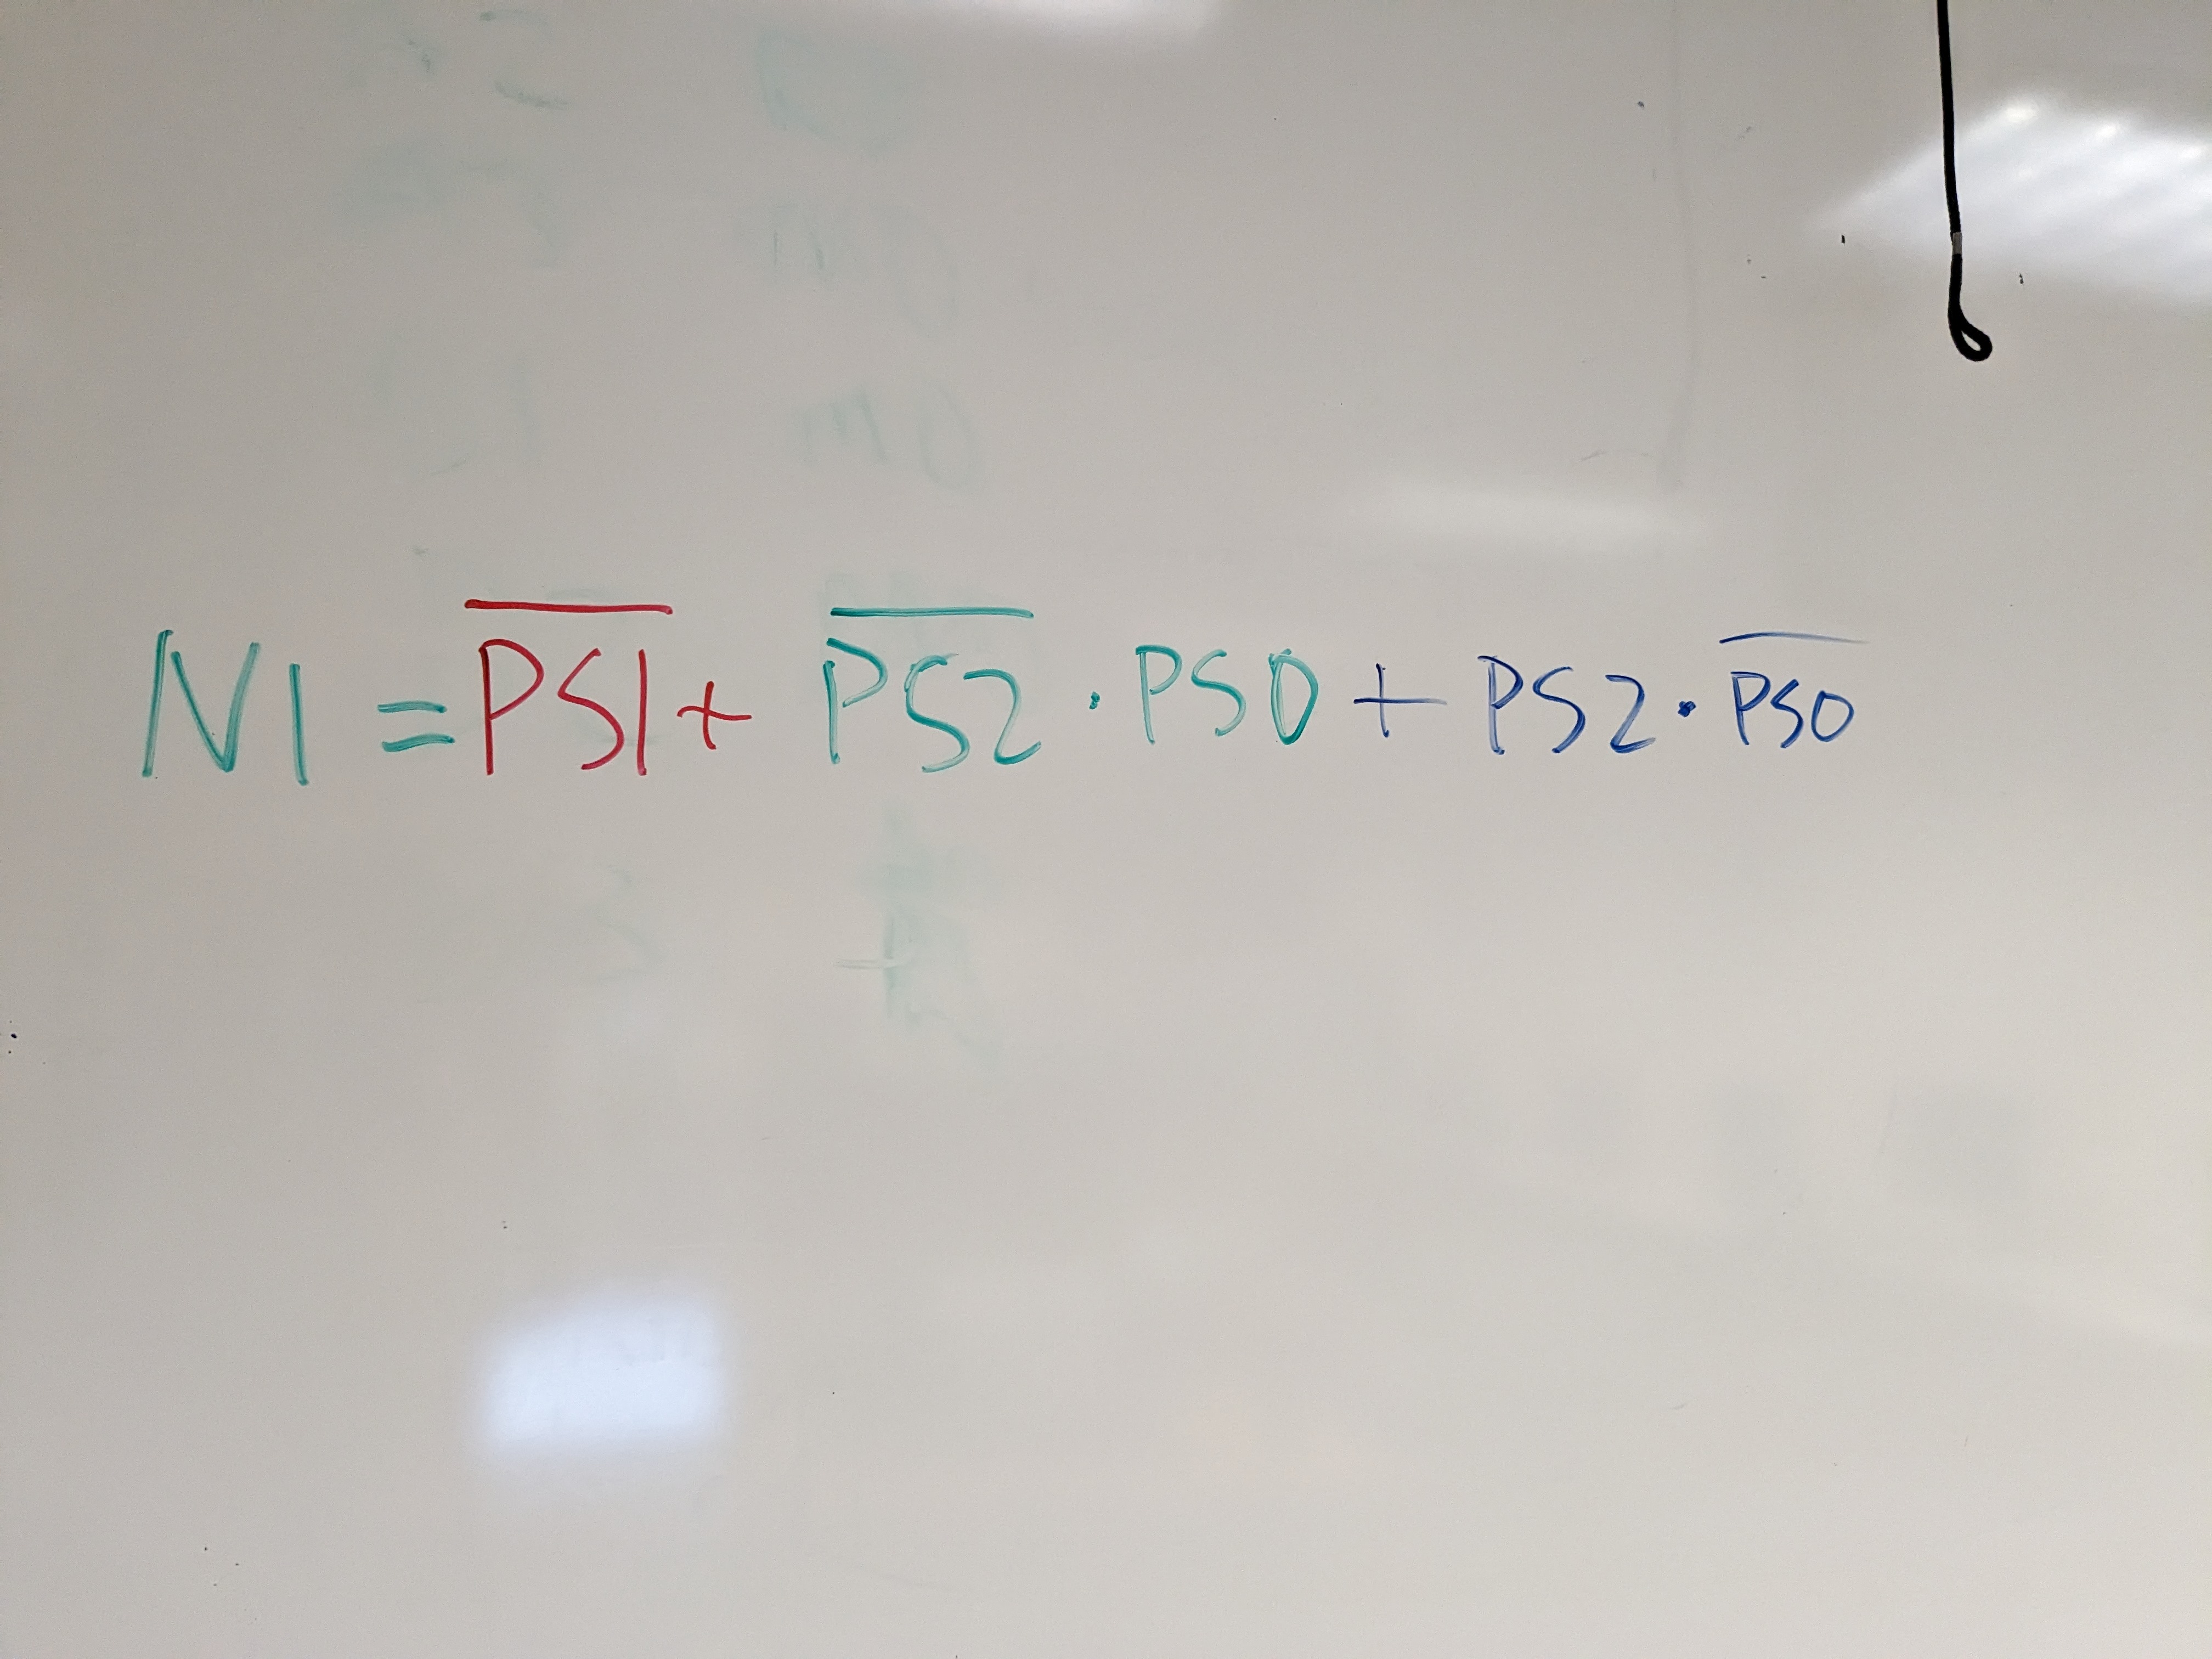 N1 = P̅S̅1̅ + P̅S̅2̅ · PS0 + PS2 · P̅S̅0̅